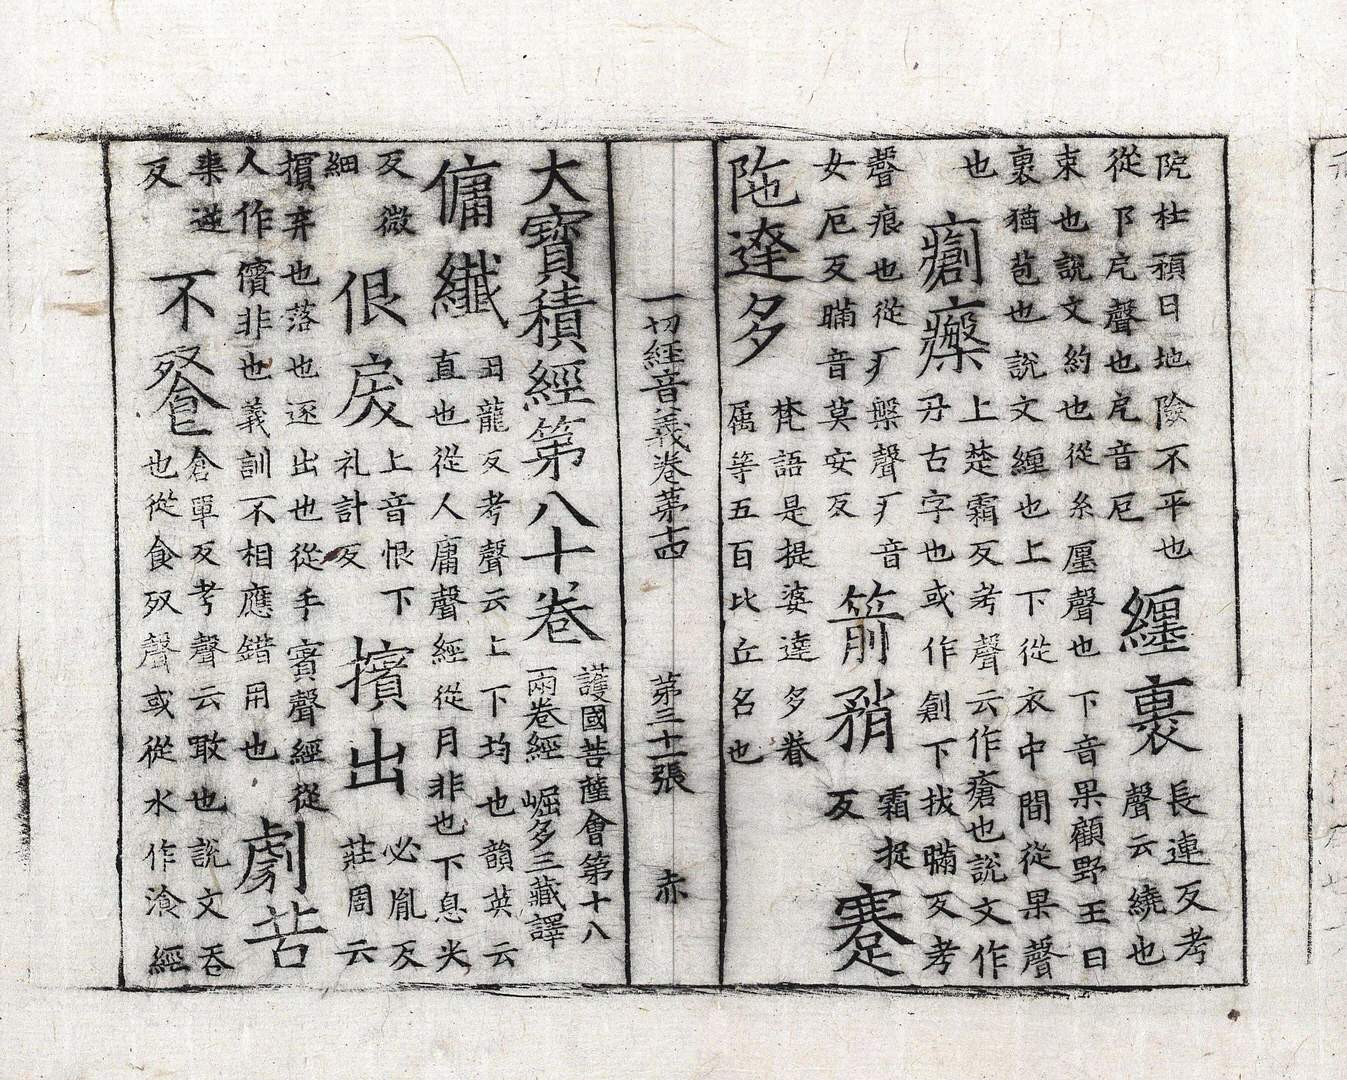 阸杜預曰地險不平也
從阝戹聲也戹音厄
纏裹
長連反考
聲云繞也
束也說文約也從糸㕓聲也下音果顧野王曰
裹猶苞也說文纏也上下從衣中間從果聲
也
瘡瘢
上楚霜反考聲云作瘡也說文作
刅古字也或作創下拔䀍反考
聲痕也從疒般聲疒音
女厄反䀍音莫安反
箭矟
霜捉
反
蹇
陁達多
梵語是提婆達多眷
属等五百比丘名也
一切經音義卷第十四 第三十二張 赤
大寶積經第八十卷
護國菩薩會第十八
兩卷經 崛多三藏譯
傭纖
丑龍反考聲云上下均也韻英云
直也從人庸聲經從月非也下息尖
反微
細
佷戾
上音恨下
礼計反
擯出
必胤反
莊周云
擯弃也落也逐出也從手賓聲經從
人作儐非也義訓不相應錯用也
劇苦
渠逆
反
不飡
倉單反考聲云歠也說文吞
也從食㕡聲或從水作湌經